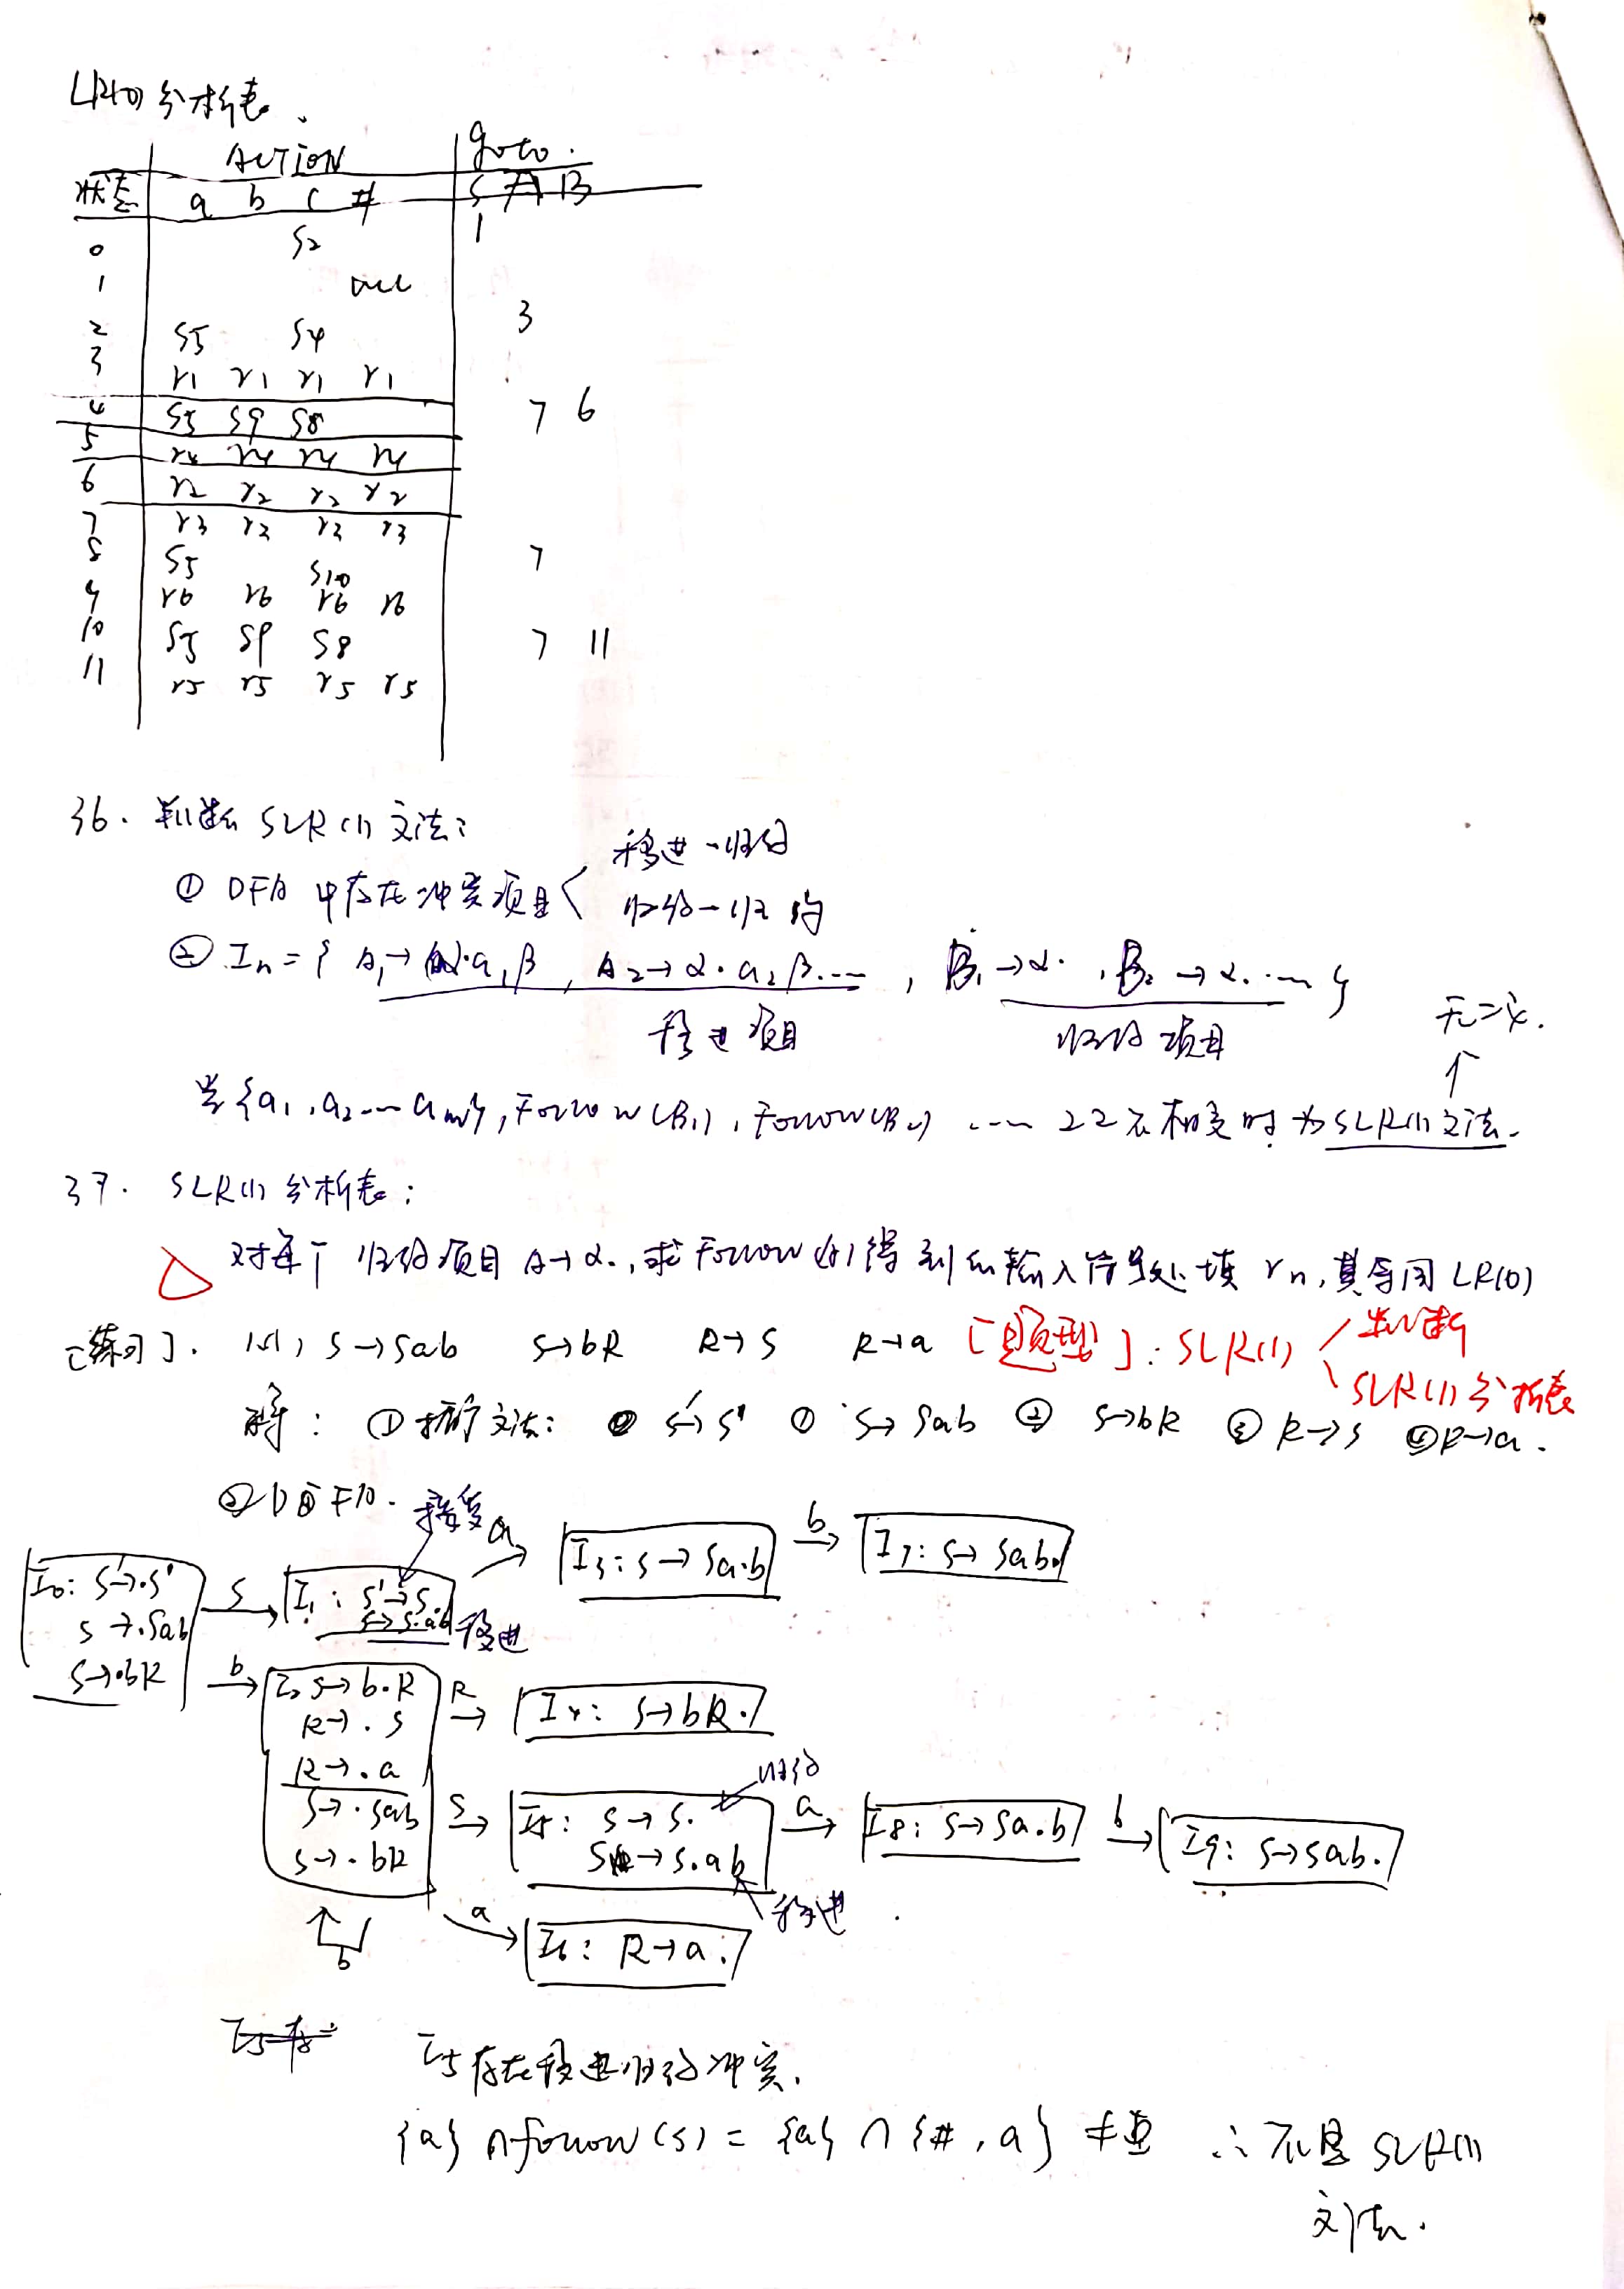 LR(0)分析表、
ACTION goto.
状态 a b c # S A B
0 S2 1
1 acc
2 S5 S4 3
3 r1 r1 r1 r1
4 S5 S9 S8 7 6
5 r4 r4 r4 r4
6 r2 r2 r2 r2
7 r3 r3 r3 r3
8 S5 S10 7
9 r6 r6 r6 r6
10 S5 S9 S8 7 11
11 r5 r5 r5 r5
36. 判断SLR(1)文法:
① DFA中存在冲突项目 移进-归约
归约-归约
② In = { A1→α·a1β, A2→α·a2β·…, B1→α·, B2→α·… }
移进项目 归约项目 无二义.
↑
当{a1,a2…am}, Follow(B1), Follow(B2) …两两不相交时为SLR(1)文法.
37. SLR(1)分析表:
△ 对每个归约项目A→α·,求Follow(A)得到的输入符号处填rn,其与同LR(0)
[练习]. S→Sab S→bR R→S R→a [题型]: SLR(1) 判断
SLR(1)分析表
解: ①拓广文法: ⓪ S'→S' ① S→Sab ② S→bR ③ R→S ④ R→a.
② DFA. 接受
I0: S'→·S' S→·Sab S→·bR
S→ I1: S'→S. S→S·ab 移进
a→ I3: S→Sa·b b→ I7: S→Sab·
b→ I2 S→b·R R→·S R→·a S→·Sab S→·bR
R→ I4: S→bR·
S→ I5: S→S· S→S·ab 归约 移进
a→ I8: S→Sa·b b→ I9: S→Sab·
a→ I6: R→a·
b
I5存在移进归约冲突.
{a} ∩ follow(S) = {a} ∩ {#, a} ≠ ∅ ∴不是SLR(1)
文法.